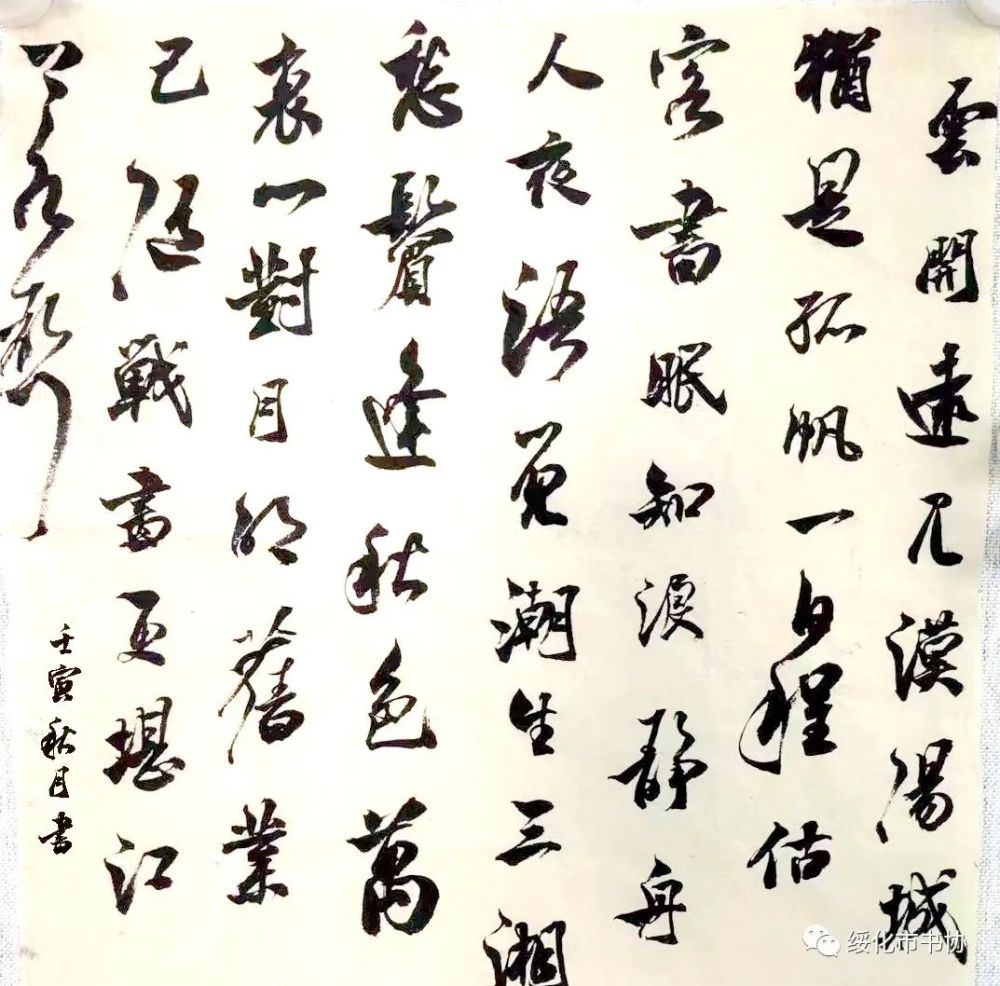 雲開遠見漢陽城
猶是孤帆一日程估
客晝眠知浪靜舟
人夜語覺潮生三湘
愁鬢逢秋色萬
心對月明舊業
已隨戰盡更堪江
上
壬寅秋月书
绥化市书协